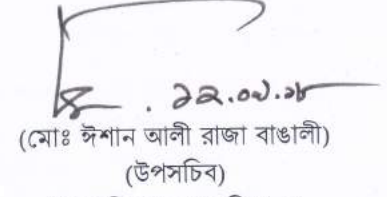 ২২.০৮.১৮
(মোঃ ঈশান আলী রাজা বাঙালী)
(উপসচিব)